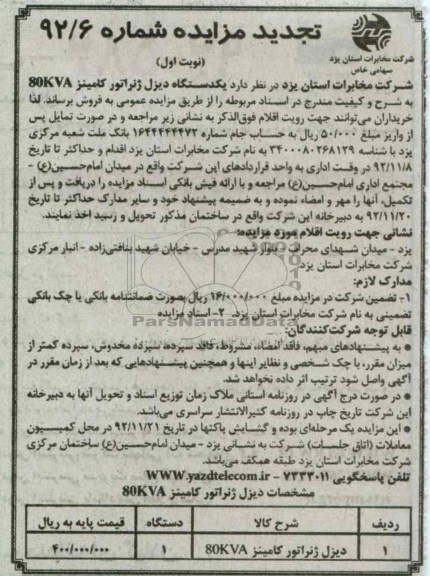 تجدید مزایده شماره ۹۲/۶
شرکت مخابرات استان یزد
سهامی خاص
(نوبت اول)
شرکت مخابرات استان یزد در نظر دارد یکدستگاه دیزل ژنراتور کامینز 80KVA
به شرح و کیفیت مندرج در اسناد مربوطه را از طریق مزایده عمومی به فروش برساند. لذا
خریداران می‌توانند جهت رویت اقلام فوق‌الذکر به نشانی زیر مراجعه و در صورت تمایل پس
از واریز مبلغ ۵۰/۰۰۰ ریال به حساب جام شماره ۱۶۴۴۴۴۴۴۷۲ بانک ملت شعبه مرکزی
یزد با شناسه ۳۴۰۰۰۸۰۲۶۸۱۲۹ به نام شرکت مخابرات استان یزد اقدام و حداکثر تا تاریخ
۹۲/۱۱/۸ در وقت اداری به واحد قراردادهای این شرکت واقع در میدان امام‌حسین(ع) -
مجتمع اداری امام‌حسین(ع) مراجعه و با ارائه فیش بانکی اسناد مزایده را دریافت و پس از
تکمیل، آنها را مهر و امضاء نموده و به ضمیمه پیشنهاد خود و سایر مدارک حداکثر تا تاریخ
۹۲/۱۱/۲۰ به دبیرخانه این شرکت واقع در ساختمان مذکور تحویل و رسید اخذ نمایند.
نشانی جهت رویت اقلام مورد مزایده:
یزد - میدان شهدای محراب - بلوار شهید مدرس - خیابان شهید بنافتی‌زاده - انبار مرکزی
شرکت مخابرات استان یزد.
مدارک لازم:
۱- تضمین شرکت در مزایده مبلغ ۱۶/۰۰۰/۰۰۰ ریال بصورت ضمانتنامه بانکی یا چک بانکی
تضمینی به نام شرکت مخابرات استان یزد. ۲- اسناد مزایده
قابل توجه شرکت‌کنندگان:
● به پیشنهادهای مبهم، فاقد امضاء، مشروط، فاقد سپرده، سپرده مخدوش، سپرده کمتر از
میزان مقرر، یا چک شخصی و نظایر اینها و همچنین پیشنهادهایی که بعد از زمان مقرر در
آگهی واصل شود ترتیب اثر داده نخواهد شد.
● در صورت درج آگهی در روزنامه استانی ملاک زمان توزیع اسناد و تحویل آنها به دبیرخانه
این شرکت تاریخ چاپ در روزنامه کثیرالانتشار سراسری می‌باشد.
● این مزایده یک مرحله‌ای بوده و گشایش پاکتها در تاریخ ۹۲/۱۱/۲۱ در محل کمیسیون
معاملات (اتاق جلسات) شرکت به نشانی یزد - میدان امام‌حسین(ع) ساختمان مرکزی
شرکت مخابرات استان یزد طبقه همکف می‌باشد.
تلفن پاسخگویی ۷۲۳۳۰۱۱ - WWW.yazdtelecom.ir
مشخصات دیزل ژنراتور کامینز 80KVA
ردیف شرح کالا دستگاه قیمت پایه به ریال
۱ دیزل ژنراتور کامینز 80KVA ۱ ۴۰۰/۰۰۰/۰۰۰
ParsNamadData